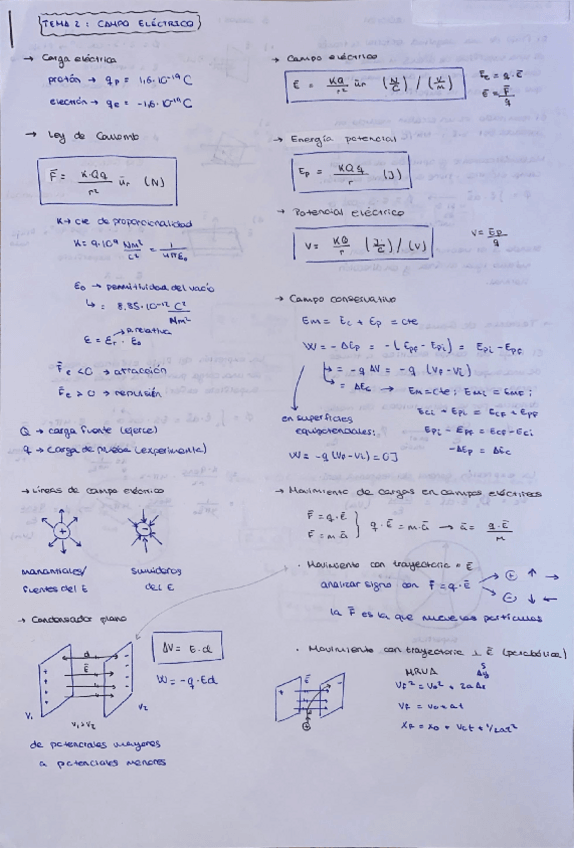 TEMA 2: CAMPO ELÉCTRICO
→ Carga eléctrica
protón → qp = 1,6·10⁻¹⁹ C
electrón → qe = -1,6·10⁻¹⁹ C
→ Ley de Coulomb
F̄ = K·Qq / r² ūr (N)
K → cte de proporcionalidad
K = 9·10⁹ Nm²/C² = 1/4πε₀
ε₀ → permitividad del vacío
↳ = 8,85·10⁻¹² C²/Nm²
→ p. relativa
ε = εr · ε₀
F̄e < 0 → atracción
F̄e > 0 → repulsión
Q → carga fuente (ejerce)
q → carga de prueba (experimenta)
→ Líneas de campo eléctrico
+
-
manantiales/
fuentes del E
sumideros
del E
→ Condensador plano
d
Ē
V₁
V₂
V₁ > V₂
ΔV = E·d
W = -q·Ed
de potenciales mayores
a potenciales menores
→ Campo eléctrico
Ē = KQ/r² ūr (N/C) / (V/m)
F̄e = q·Ē
Ē = F̄/q
→ Energía potencial
Ep = KQq/r (J)
→ Potencial eléctrico
V = KQ/r (J/C) / (V)
V = Ep/q
→ Campo conservativo
Em = Ec + Ep = cte
W = -ΔEp = -(Epf - Epi) = Epi - Epf
↳ = -qΔV = -q (Vf - Vi)
↳ = ΔEc → Em = cte; Emi = Emf;
Eci + Epi = Ecf + Epf
Epi - Epf = Ecf - Eci
-ΔEp = ΔEc
en superficies
equipotenciales:
W = -q (Vf - Vi) = 0J
→ Movimiento de cargas en campos eléctricos
F̄ = q·Ē
F̄ = m·ā
q·Ē = m·ā → ā = q·Ē/m
· Movimiento con trayectoria = Ē
analizar signo con F̄ = q·Ē
⊕ ↑ →
⊖ ↓ ←
la F̄ es la que mueve las partículas
· Movimiento con trayectoria ⊥ Ē (parabólica)
Ē
⊕
MRUA
Vf² = V₀² + 2aΔs
Δy
Vf = V₀ + at
Xf = X₀ + V₀t + 1/2at²